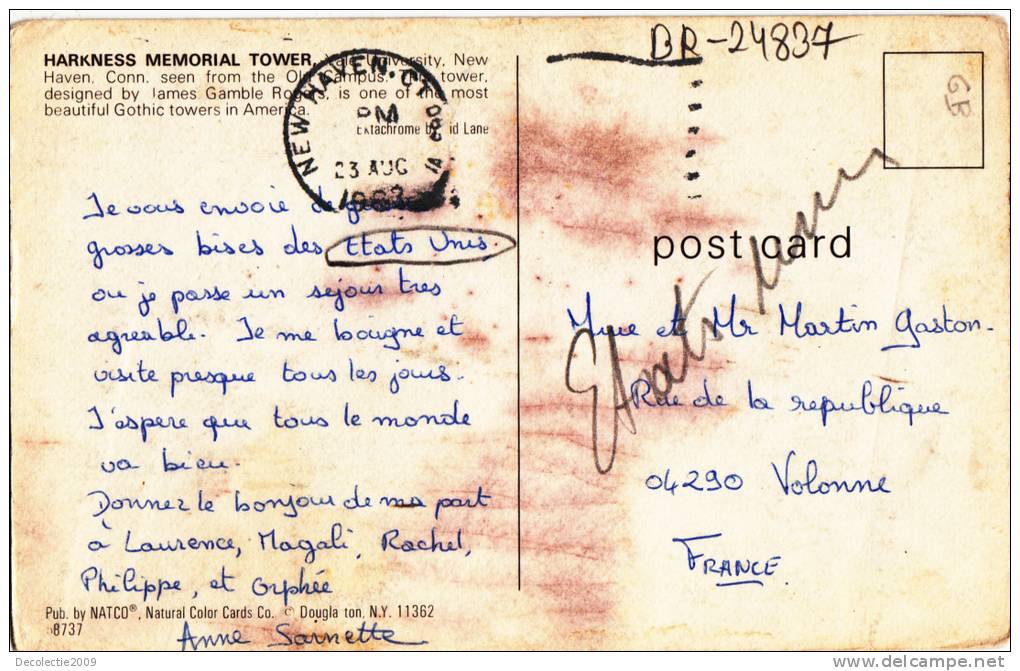 BR-24837
GB
HARKNESS MEMORIAL TOWER, Yale University, New
Haven, Conn. seen from the Old Campus. This tower,
designed by James Gamble Rogers, is one of the most
beautiful Gothic towers in America.
Ektachrome by id Lane
NEW HAVEN, CT
PM
23 AUG
Je vous envoie de
grosses bises des Etats Unis.
ou je passe un sejour tres
agreable. Je me baigne et
visite presque tous les jours.
J'espere que tous le monde
va bien.
Donnez le bonjour de ma part
à Laurence, Magali, Rachel,
Philippe, et Orphée
Anne Sarnette
Pub. by NATCO®, Natural Color Cards Co. © Dougla ton, N.Y. 11362
58737
post card
Etats unis
Mme et Mr Martin Gaston.
Rue de la republique
04290 Volonne
FRANCE.
Decolectie2009
delcampe.net